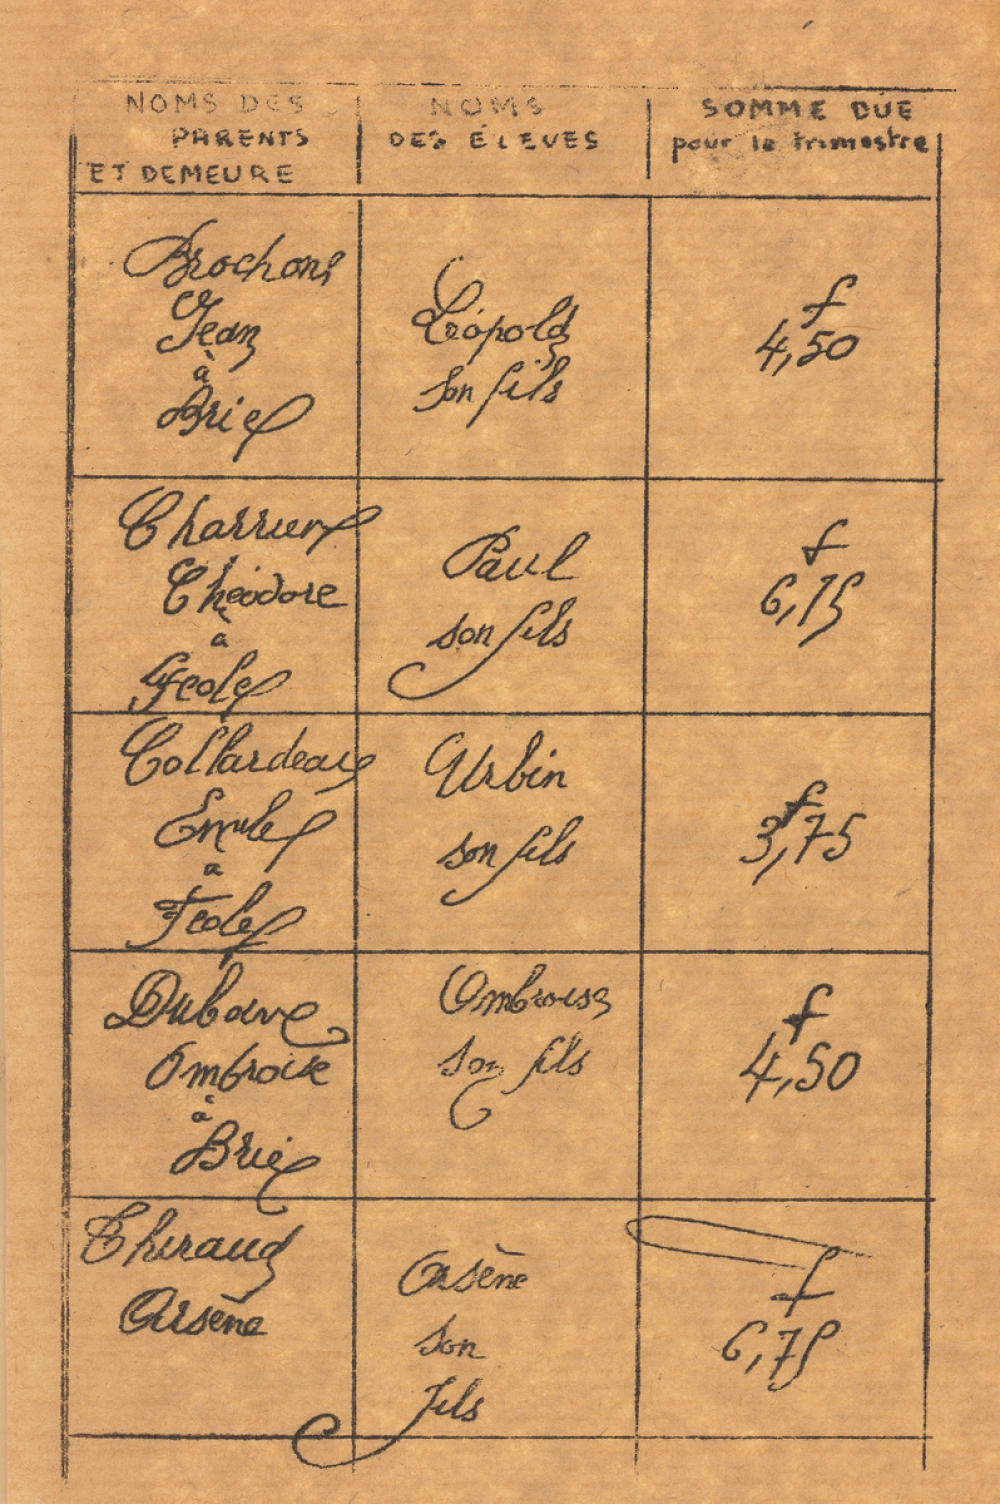 NOMS DES
PARENTS
ET DEMEURE
NOMS
DES ÉLEVES
SOMME DÙE
pour le trimestre
Brochons
Jean
à
Brie
Léopold
son fils
f
4,50
Charrier
Théodore
à
Féole
Paul
son fils
f
6,75
Collardeau
Emile
a
Féole
Urbin
son fils
f
3,75
Ambroise
à
Brie
Ambroise
son fils
f
4,50
Théraud
Arsène
Arsène
son
fils
f
6,75